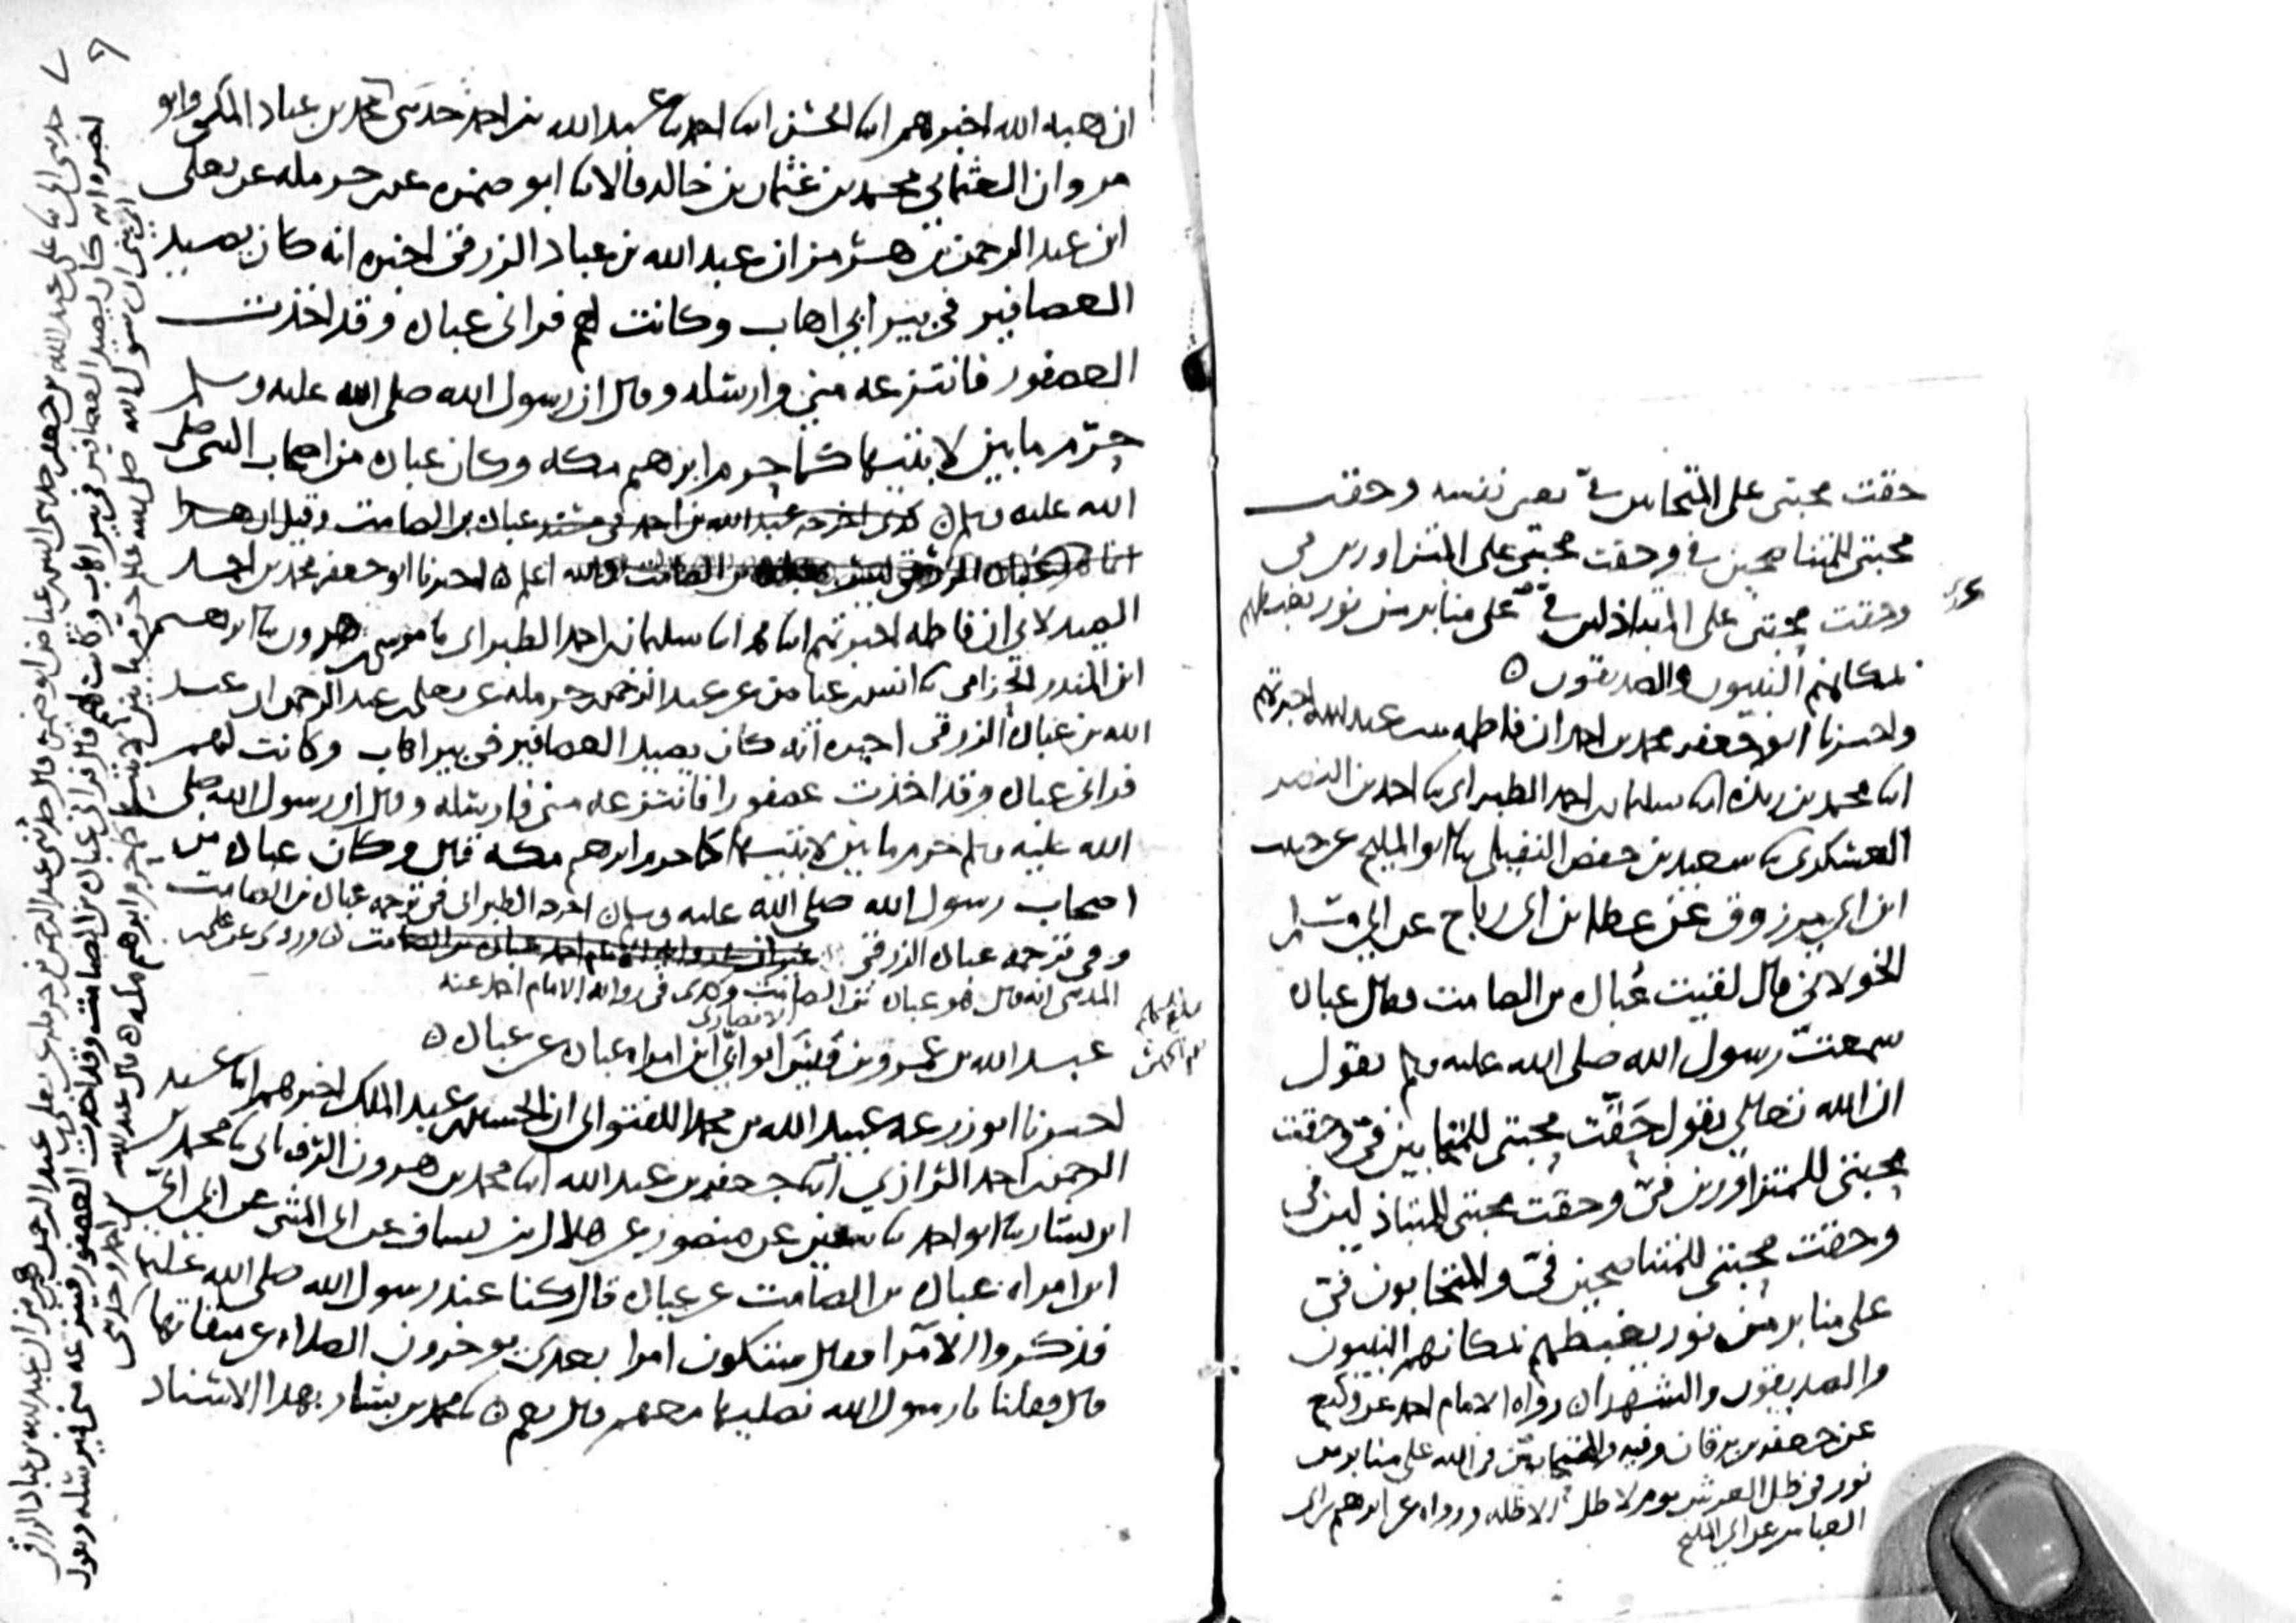 حقت محبتي على المتحابين فيّ يعني نفسه وحقت
محبتي للمتناصحين فيّ وحقت محبتي على المتزاورين في
وحقت محبتي على المتباذلين فيّ على منابر من نور يغبطهم
بمكانهم النبيون والصديقون ٥
واخبرنا ابو جعفر محمد بن احمد ان فاطمه بنت عبد الله اخبرتهم
ابنا محمد بن ريذه ابنا سليمان بن احمد الطبراني نا احمد بن النضر
العسكري نا سعيد بن حفص النفيلي نا ابو المليح عن حبيب
ابن ابي مرزوق عن عطا بن ابي رباح عن ابي مسلم
الخولاني قال لقيت عباده بن الصامت فقال عباده
سمعت رسول الله صلى الله عليه وسلم يقول
ان الله تعالى يقول حَقَّت محبتي للمتحابين فيّ وحقت
محبتي للمتزاورين فيّ وحقت محبتي للمتباذلين في
وحقت محبتي للمتناصحين فيّ والمتحابون فيّ
على منابر من نور يغبطهم بمكانهم النبيون
والصديقون والشهدا ٥ رواه الامام احمد عن وكيع
عن جعفر بن برقان وفيه والمتحابين في الله على منابر من
نور في ظل العرش يوم لا ظل الا ظله ورواه عن ابرهيم بن ابي
العباس عن ابي المليح
ان هبه الله اخبرهم ابنا الحسن ابنا احمد نا عبد الله بن احمد حدثني محمد بن عباد المكي وابو
مروان العثماني محمد بن عثمان بن خالد قالا نا ابو ضمره عن حرمله عن يعلى
ابن عبد الرحمن بن هرمز ان عبد الله بن عباد الزرقي اخبره انه كان يصيد
العصافير في بير ابي اهاب وكانت لهم فراني عباده وقد اخذت
العصفور فانتزعه مني وارسله وقال ان رسول الله صلى الله عليه وسلم
حرّم ما بين لابتيها كما حرم ابرهيم مكه وكان عباده من اصحاب النبي صلى
الله عليه وسلم ٥ كذى اخرجه عبد الله بن احمد في مسند عباده بن الصامت وقيل ان هذا
والله اعلم ٥ اخبرنا ابو جعفر محمد بن احمد
الصيدلاني ان فاطمه اخبرتهم ابنا محمد ابنا سليمان بن احمد الطبراني نا موسى بن هرون نا ابرهيم
ابن المنذر الحزامي نا انس بن عياض عن عبد الرحمن بن حرمله عن يعلى بن عبد الرحمن ان عبد
الله بن عباده الزرقي اخبره انه كان يصيد العصافير في بير اهاب وكانت لهم
فراني عباده وقد اخذت عصفورا فانتزعه مني فارسله وقال ان رسول الله صلى
الله عليه وسلم حرم ما بين لابتيها كما حرم ابرهيم مكه قال وكان عباده من
اصحاب رسول الله صلى الله عليه وسلم ٥ اخرجه الطبراني في ترجمه عباده بن الصامت
وفي ترجمه عباده الزرقي ٥ وروي عن علي
المديني انه قال هو عباده بن الصامت وكذى في روايه الامام احمد عنه
الانصاري
عبد الله بن عمرو بن قيس ابو ابي ابن امراه عباده عن عباده ٥
اخبرنا ابو زرعه عبيد الله بن محمد اللفتواني ان الحسين بن عبد الملك اخبرهم ابنا عبد
الرحمن بن احمد الرازي ابنا جعفر بن عبد الله ابنا محمد بن هرون الروياني نا محمد بن
بشار نا ابو احمد نا سفين عن منصور عن هلال بن يساف عن ابي المثنى عن ابي ابي
ابن امراه عباده بن الصامت عن عباده قال كنا عند رسول الله صلى الله عليه
فذكروا الامرا فقال ستكون امرا بعدي يوخرون الصلاه عن ميقاتها
قال فقلنا يا رسول الله نصليها معهم قال نعم ٥ نا محمد بن بشار بهذا الاسناد
حدثني ابي نا علي بن عبد الله بن جعفر حدثني انس بن عياض ابو ضمره قال حدثني عبد الرحمن بن حرمله عن يعلى بن عبد الرحمن بن هرمز ان عبد الله بن عباد الزرقي
اخبره انه كان يصيد العصافير في بير اهاب وكانت لهم قال فراني عباده بن الصامت وقد اخذت العصفور فينزعه مني فيرسله ويقول
اي بني ان رسول الله صلى الله عليه حرم ما بين لابتيها كما حرم ابرهيم مكه ٥ قال عبد الله بن احمد وحدثني